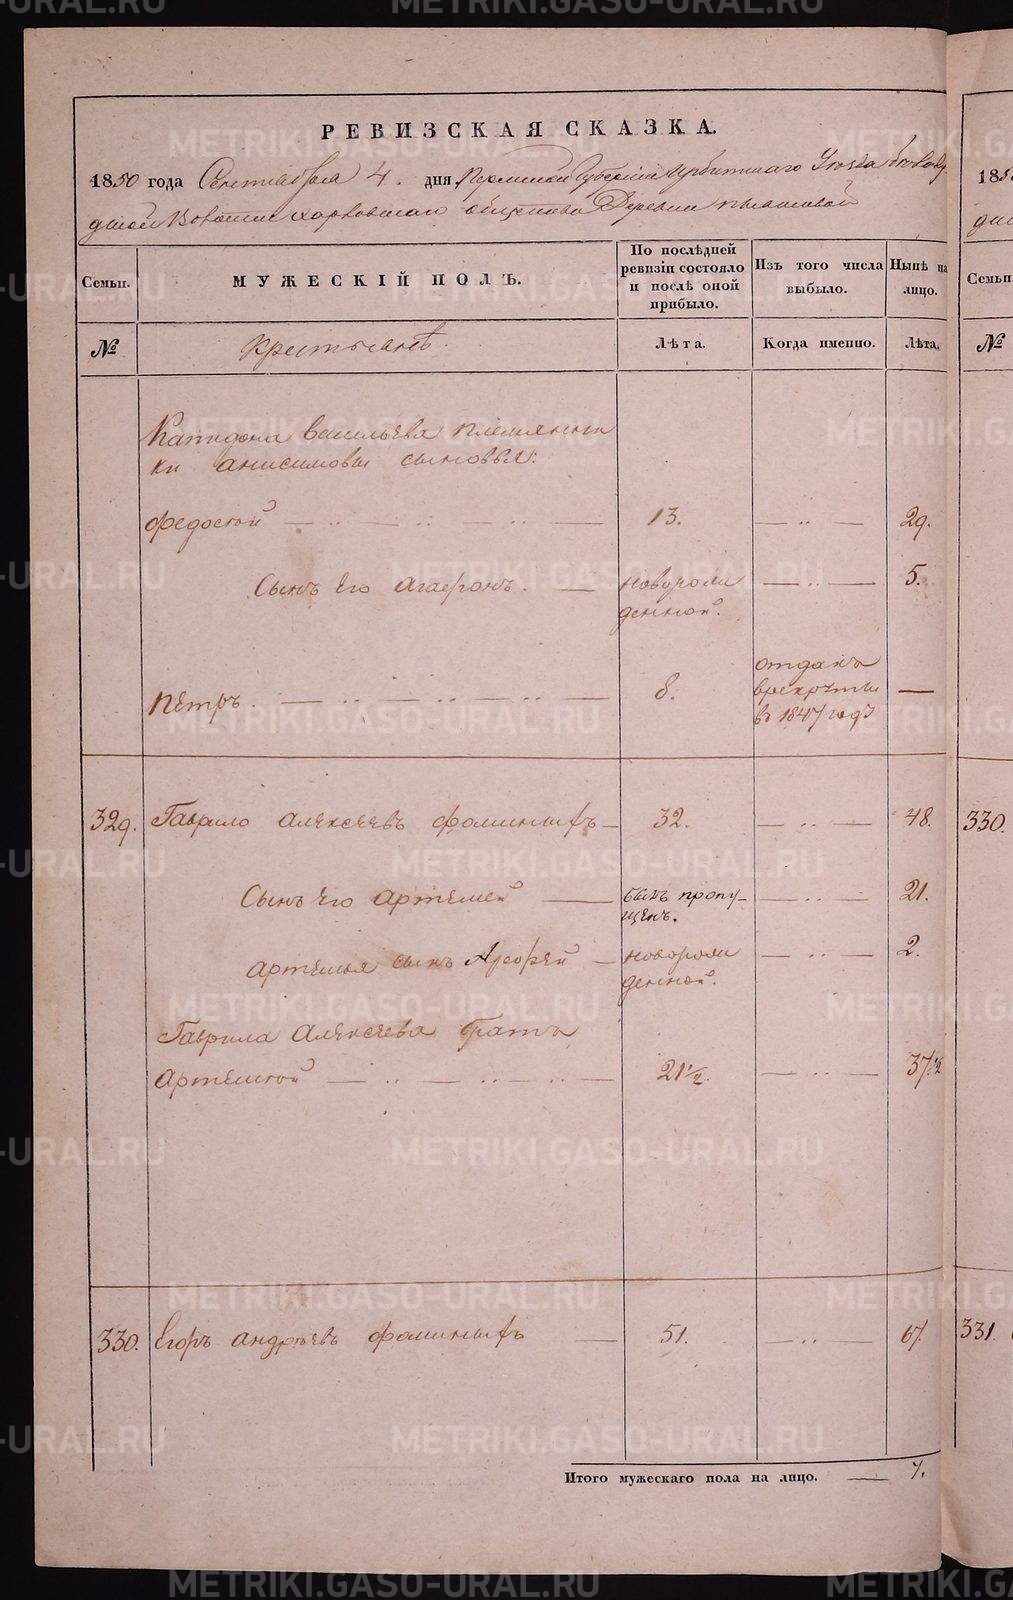 РЕВИЗСКАЯ СКАЗКА.
1850 года Сентября 4. дня Пермской Губернии Ирбитскаго Уезда
Волости Харловскаго общества Деревни
Семьи.
МУЖЕСКІЙ ПОЛЪ.
По послѣдней ревизіи состояло и послѣ оной прибыло.
Изъ того числа выбыло.
Нынѣ на лицо.
Семьи
№
Крестьянѣ.
Лѣта.
Когда именно.
Лѣта.
№
Капидона Васильева племянни
ки Анисимовы сыновья:
Федосей 13. 29.
Сынъ Его Агафонъ. новорож
денной. 5.
Петръ. 8. отданъ
врекруты
въ 1847 годъ
329. Гаврило Алексеевъ Фоминыхъ 32. 48. 330.
Сынъ Его Артемей былъ пропу-
щенъ. 21.
Артемья сынъ Арефей новорож
денной. 2.
Гаврила Алексеева братъ
Артемей 21 1/2. 37 1/2
330. Егоръ Андреевъ Фоминыхъ 51. 67. 331.
Итого мужескаго пола на лицо. 7.
METRIKI.GASO-URAL.RU